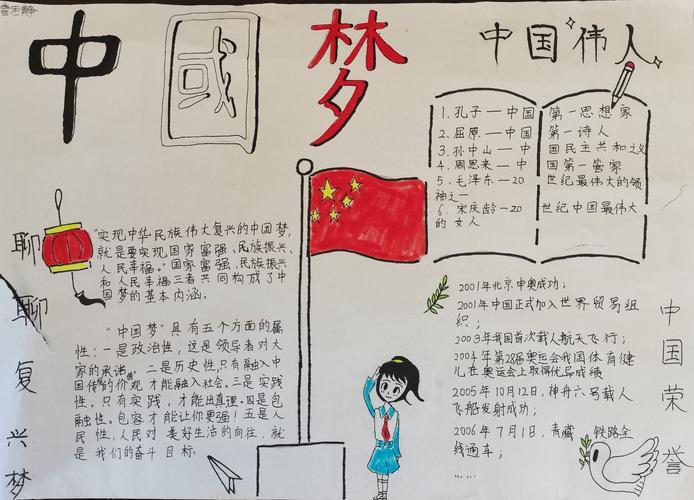 中國梦
中国伟人
1.孔子—中国 第一思想家
2.屈原—中国 第一诗人
3.孙中山—中 国民主共和之义
4.周恩来—中 国第一管家
5、毛泽东—20 世纪最伟大的领
袖之一
6.宋庆龄—20 世纪中国最伟大
的女人
聊聊复兴梦
"实现中华民族伟大复兴的中国梦,
就是要实现国家富强、民族振兴、
人民幸福。"国家富强、民族振兴
和人民幸福三者共同构成了中
国梦的基本内涵。
"中国梦"具有五个方面的属
性:一是政治性,这是领导者对大
家的承诺。二是历史性,只有融入中
国传的价观,才能融入社会。三是实践
性。只有实践,才能出真理。四是包
融性。包容才能让你更强!五是人
民性,人民对美好生活的向往,就
是我们的奋斗目标。
2001年北京申奥成功;
2001年中国正式加入世界贸易组
织;
2003年我国首次载人航天飞行;
2004年第28届奥运会我国体育健
儿在奥运会上取得优异成绩
2005年10月12日,神舟六号载人
飞船发射成功;
2006年7月1日,青藏铁路全
线通车;
……
中国荣誉